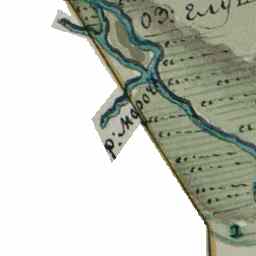 оз. глу
р. Мороч